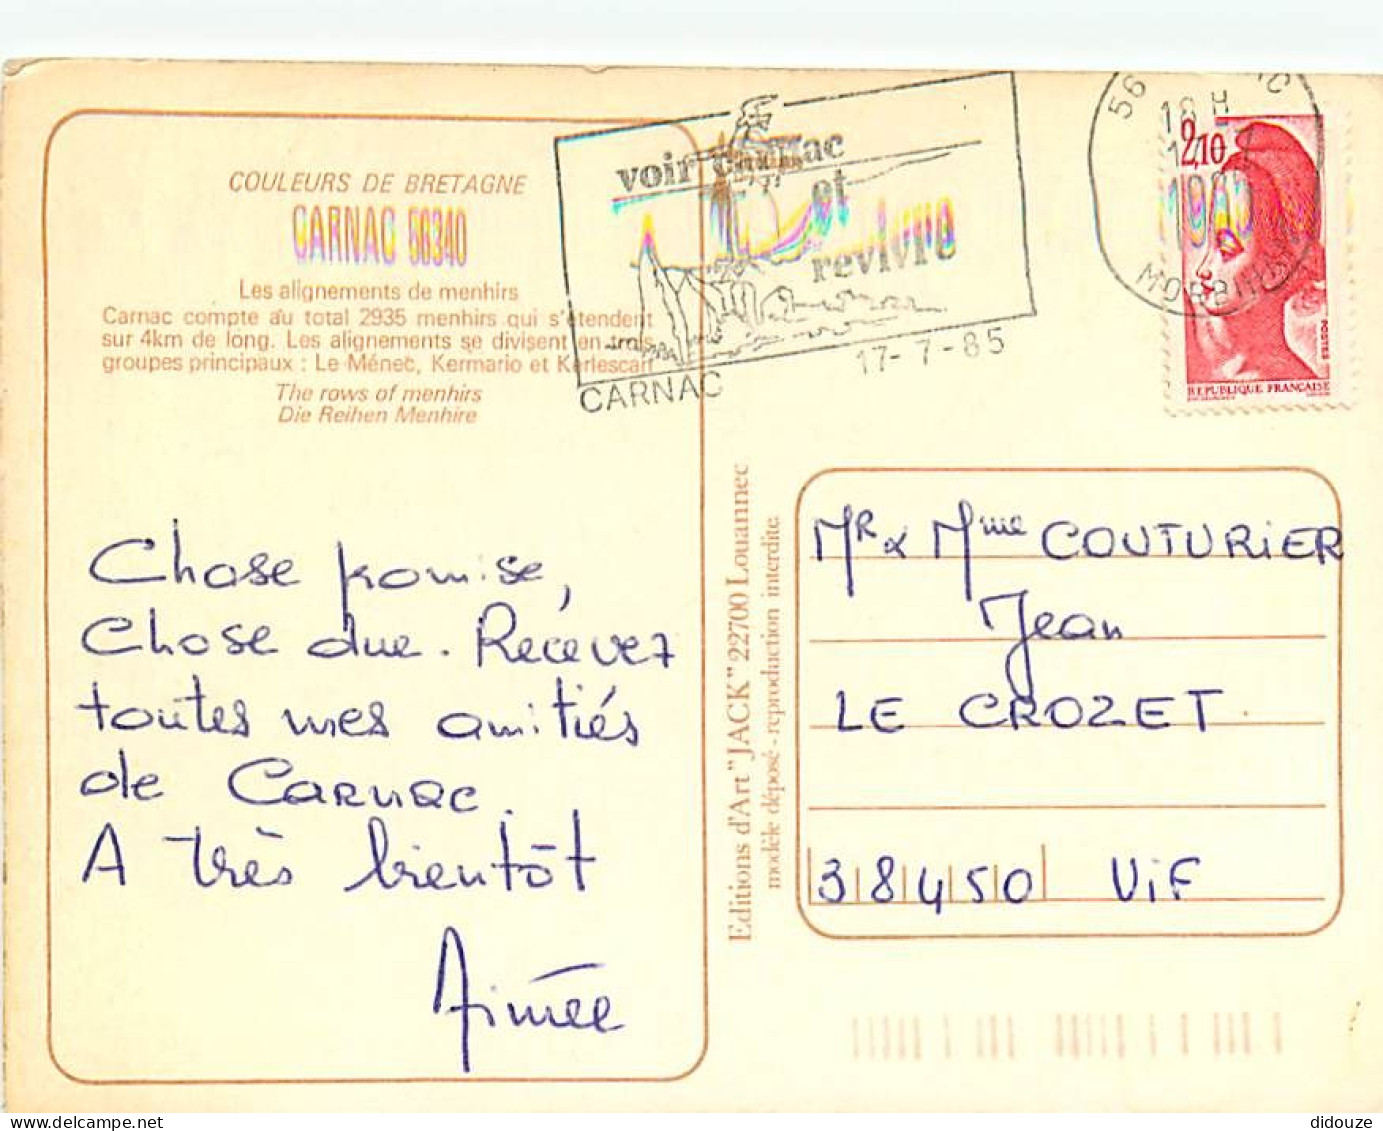 COULEURS DE BRETAGNE
CARNAC 56340
Les alignements de menhirs
Carnac compte au total 2935 menhirs qui s'étendent
sur 4km de long. Les alignements se divisent en trois
groupes principaux : Le Ménec, Kermario et Kerlescan
The rows of menhirs
Die Reihen Menhire
voir carnac
et
revivre
CARNAC 17-7-85
56
18H
1985
MORBIHAN
2,10
POSTES
REPUBLIQUE FRANÇAISE
Chose promise,
Chose due. Recevez
toutes mes amitiés
de Carnac.
A très bientôt
Aimée
Editions d'Art "JACK" 22700 Louannec
modèle déposé - reproduction interdite
Mr & Mme COUTURIER
Jean
LE CROZET
38450 ViF
didouze